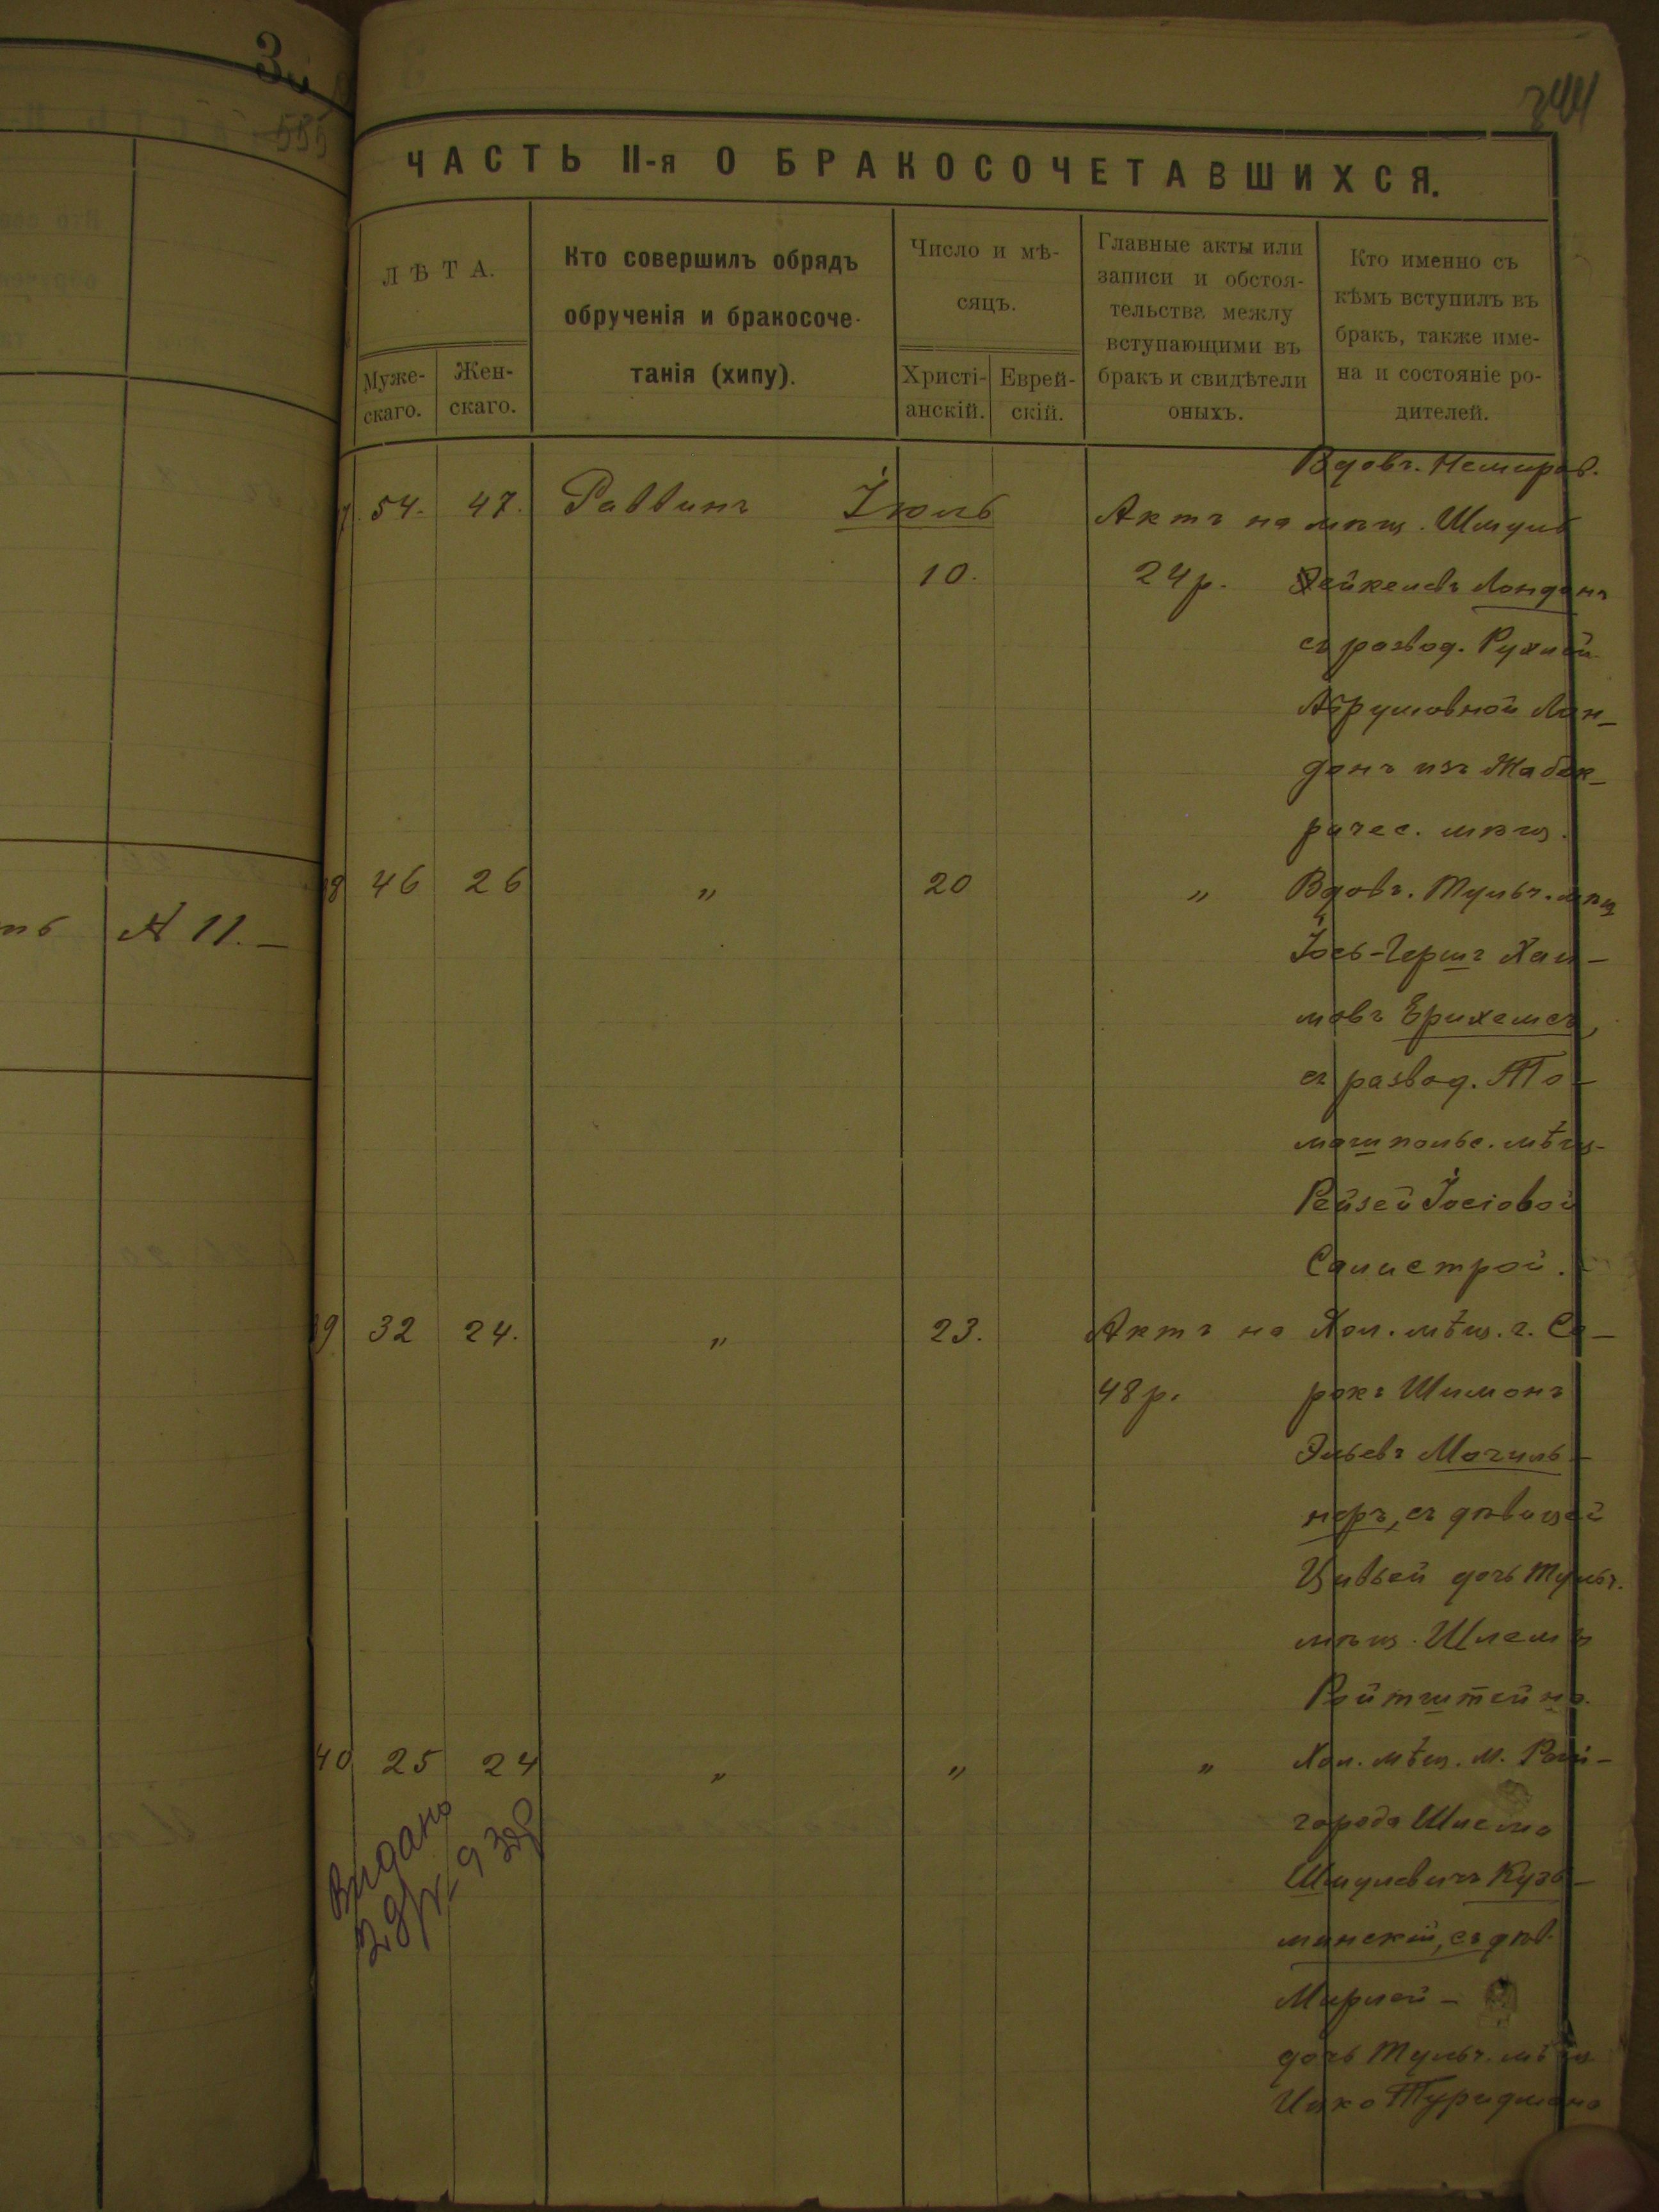 3
555
344
ЧАСТЬ II-я О БРАКОСОЧЕТАВШИХСЯ.
ЛѢТА.
Муже-
скаго.
Жен-
скаго.
Кто совершилъ обрядъ
обрученія и бракосоче-
танія (хипу).
Число и мѣ-
сяцъ.
Христі-
анскій.
Еврей-
скій.
Главные акты или
записи и обстоя-
тельства между
вступающими въ
бракъ и свидѣтели
оныхъ.
Кто именно съ
кѣмъ вступилъ въ
бракъ, также име-
на и состояніе ро-
дителей.
Вдовъ. Немиров.
54. 47. Раввинъ Іюль Актъ на мѣщ. Шмуль
10. 24 р. Хейкелевъ Лонданъ
съ развод. Рухлей
Абрумовной Лон-
данъ изъ Жабок-
ричес. мѣщ.
46 26 " 20 " Вдовъ. Тульч. мѣщ
Іось-Гершъ Хаи-
мовъ Ерихемсъ,
съ развод. То-
машпольс. мѣщ-
Рейзей Іосіовой
Салистрой.
39 32 24. " 23. Актъ на Хол. мѣщ. г. Со-
48 р. рокъ Шимонъ
Эльевъ Могиль-
неръ, съ дѣвицей
Цивьей дочь Тульч.
мѣщ. Шлемы
Ройтштейна.
40 25 24 " " " Хол. мѣщ. м. Рай-
города Шлема
Шмулевичъ Кузь-
минскій, съ дѣв.
Мирлей -
дочь Тульч. мѣщ
Ицко Туридмана
Видано
№ 11. —